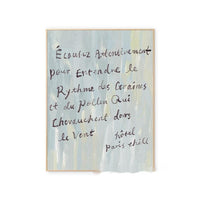 Écoutez Attentivement
pour Entendre le
Rythme des Graines
et du Pollen Qui
Chevauchent dans
le Vent
hôtel
paris chill